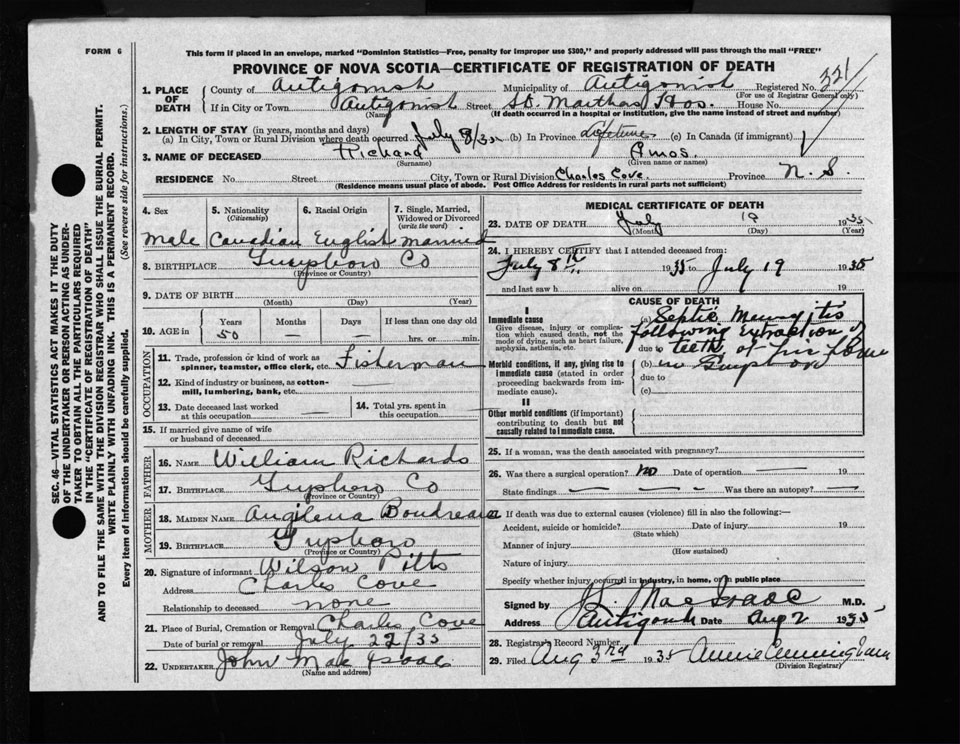 FORM 6
This form if placed in an envelope, marked "Dominion Statistics—Free, penalty for improper use $300," and properly addressed will pass through the mail "FREE"
PROVINCE OF NOVA SCOTIA—CERTIFICATE OF REGISTRATION OF DEATH
321
1. PLACE OF DEATH
County of Antigonish Municipality of Antigonish Registered No.
(For use of Registrar General only)
If in City or Town Antigonish Street St. Marthas Hos. House No.
(Name) (If death occurred in a hospital or institution, give the name instead of street and number)
2. LENGTH OF STAY (in years, months and days)
(a) In City, Town or Rural Division where death occurred July 8/35 (b) In Province Lifetime (c) In Canada (if immigrant)
3. NAME OF DECEASED Richard Amos.
(Surname) (Given name or names)
RESIDENCE No. Street City, Town or Rural Division Charles Cove. Province N. S.
(Residence means usual place of abode. Post Office Address for residents in rural parts not sufficient)
4. Sex
5. Nationality (Citizenship)
6. Racial Origin
7. Single, Married, Widowed or Divorced (write the word)
Male Canadian English married
8. BIRTHPLACE Guysboro Co
(Province or Country)
9. DATE OF BIRTH
(Month) (Day) (Year)
10. AGE in
Years Months Days If less than one day old
50 — hrs. or min.
OCCUPATION
11. Trade, profession or kind of work as Fisherman
spinner, teamster, office clerk, etc.
12. Kind of industry or business, as cotton-
mill, lumbering, bank, etc.
13. Date deceased last worked at this occupation —
14. Total yrs. spent in this occupation
15. If married give name of wife
or husband of deceased
FATHER
16. NAME William Richards
17. BIRTHPLACE Guysboro Co
(Province or Country)
MOTHER
18. MAIDEN NAME Angilena Boudreau
19. BIRTHPLACE Guysboro
(Province or Country)
20. Signature of informant Wilson Pitts
Address Charles Cove
Relationship to deceased none
21. Place of Burial, Cremation or Removal Charles Cove
Date of burial or removal July 22/35
22. UNDERTAKER John Mac Isaac
(Name and address)
MEDICAL CERTIFICATE OF DEATH
23. DATE OF DEATH July 19 1935
(Month) (Day) (Year)
24. I HEREBY CERTIFY that I attended deceased from:
July 8th 1935 to July 19 1935
and last saw h alive on 19
CAUSE OF DEATH
I
Immediate cause
Give disease, injury or complica-
tion which caused death, not the
mode of dying, such as heart failure,
asphyxia, asthenia, etc.
Morbid conditions, if any, giving rise to
immediate cause (stated in order
proceeding backwards from im-
mediate cause).
II
Other morbid conditions (if important)
contributing to death but not
causally related to immediate cause.
(a) Septic Meningitis
following Extraction of
due to teeth at his home
(b) in Guysboro
due to
(c)
25. If a woman, was the death associated with pregnancy?
26. Was there a surgical operation? no Date of operation — 19
State findings — — — Was there an autopsy? —
27. If death was due to external causes (violence) fill in also the following:—
Accident, suicide or homicide? Date of injury 19
(State which)
Manner of injury
(How sustained)
Nature of injury
Specify whether injury occurred in industry, in home, or in public place
Signed by MacIsaac M.D.
Address Antigonish Date Aug 2 1935
28. Registrar's Record Number
29. Filed Aug 3rd 1935 Annie Cunningham
(Division Registrar)
SEC. 46—VITAL STATISTICS ACT MAKES IT THE DUTY
OF THE UNDERTAKER OR PERSON ACTING AS UNDER-
TAKER TO OBTAIN ALL THE PARTICULARS REQUIRED
IN THE "CERTIFICATE OF REGISTRATION OF DEATH"
AND TO FILE THE SAME WITH THE DIVISION REGISTRAR WHO SHALL ISSUE THE BURIAL PERMIT.
WRITE PLAINLY WITH UNFADING INK. THIS IS A PERMANENT RECORD.
Every item of information should be carefully supplied. (See reverse side for instructions.)